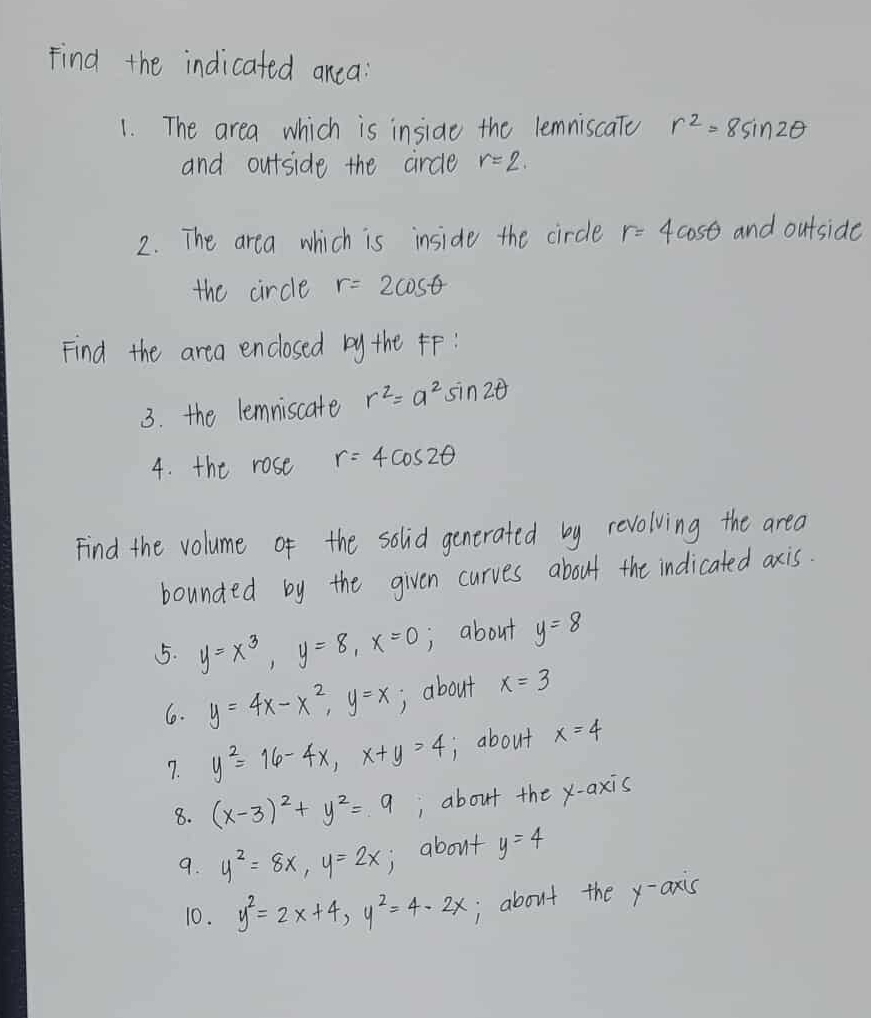 Find the indicated area:
1. The area which is inside the lemniscate r² = 8sin2θ
and outside the circle r=2.
2. The area which is inside the circle r= 4cosθ and outside
the circle r= 2cosθ
Find the area enclosed by the FF:
3. the lemniscate r²= a² sin 2θ
4. the rose r= 4 cos2θ
Find the volume of the solid generated by revolving the area
bounded by the given curves about the indicated axis.
5. y=x³, y=8, x=0; about y=8
6. y= 4x-x², y=x; about x=3
7. y²= 16-4x, x+y=4; about x=4
8. (x-3)²+ y²= 9; about the y-axis
9. y²= 8x, y=2x; about y=4
10. y²= 2x+4, y²= 4-2x; about the y-axis